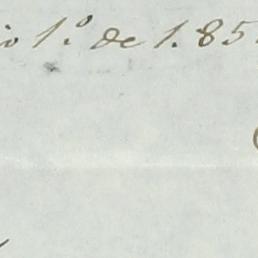 io 1.º de 1.85